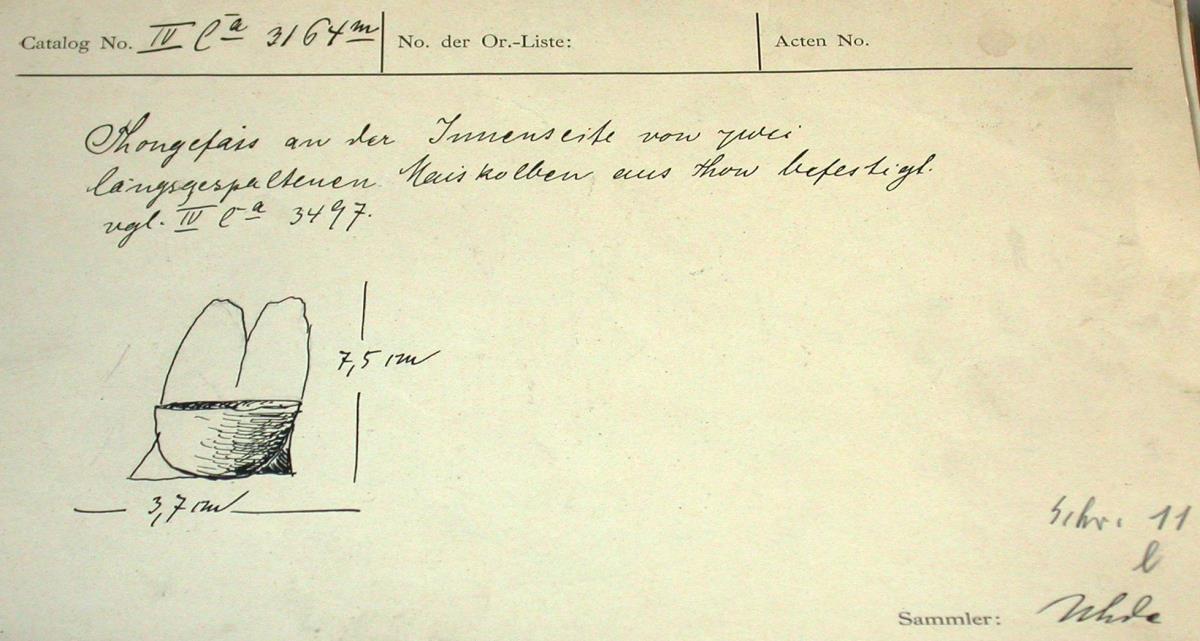 Catalog No. IV Ca 3164m No. der Or.-Liste: Acten No.
Thongefäss an der Innenseite von zwei
längsgespaltenen Maiskolben aus Thon befestigt.
vgl. IV Ca 3497.
7,5 cm
3,7 cm
Schr. 11
l
Sammler: Uhde